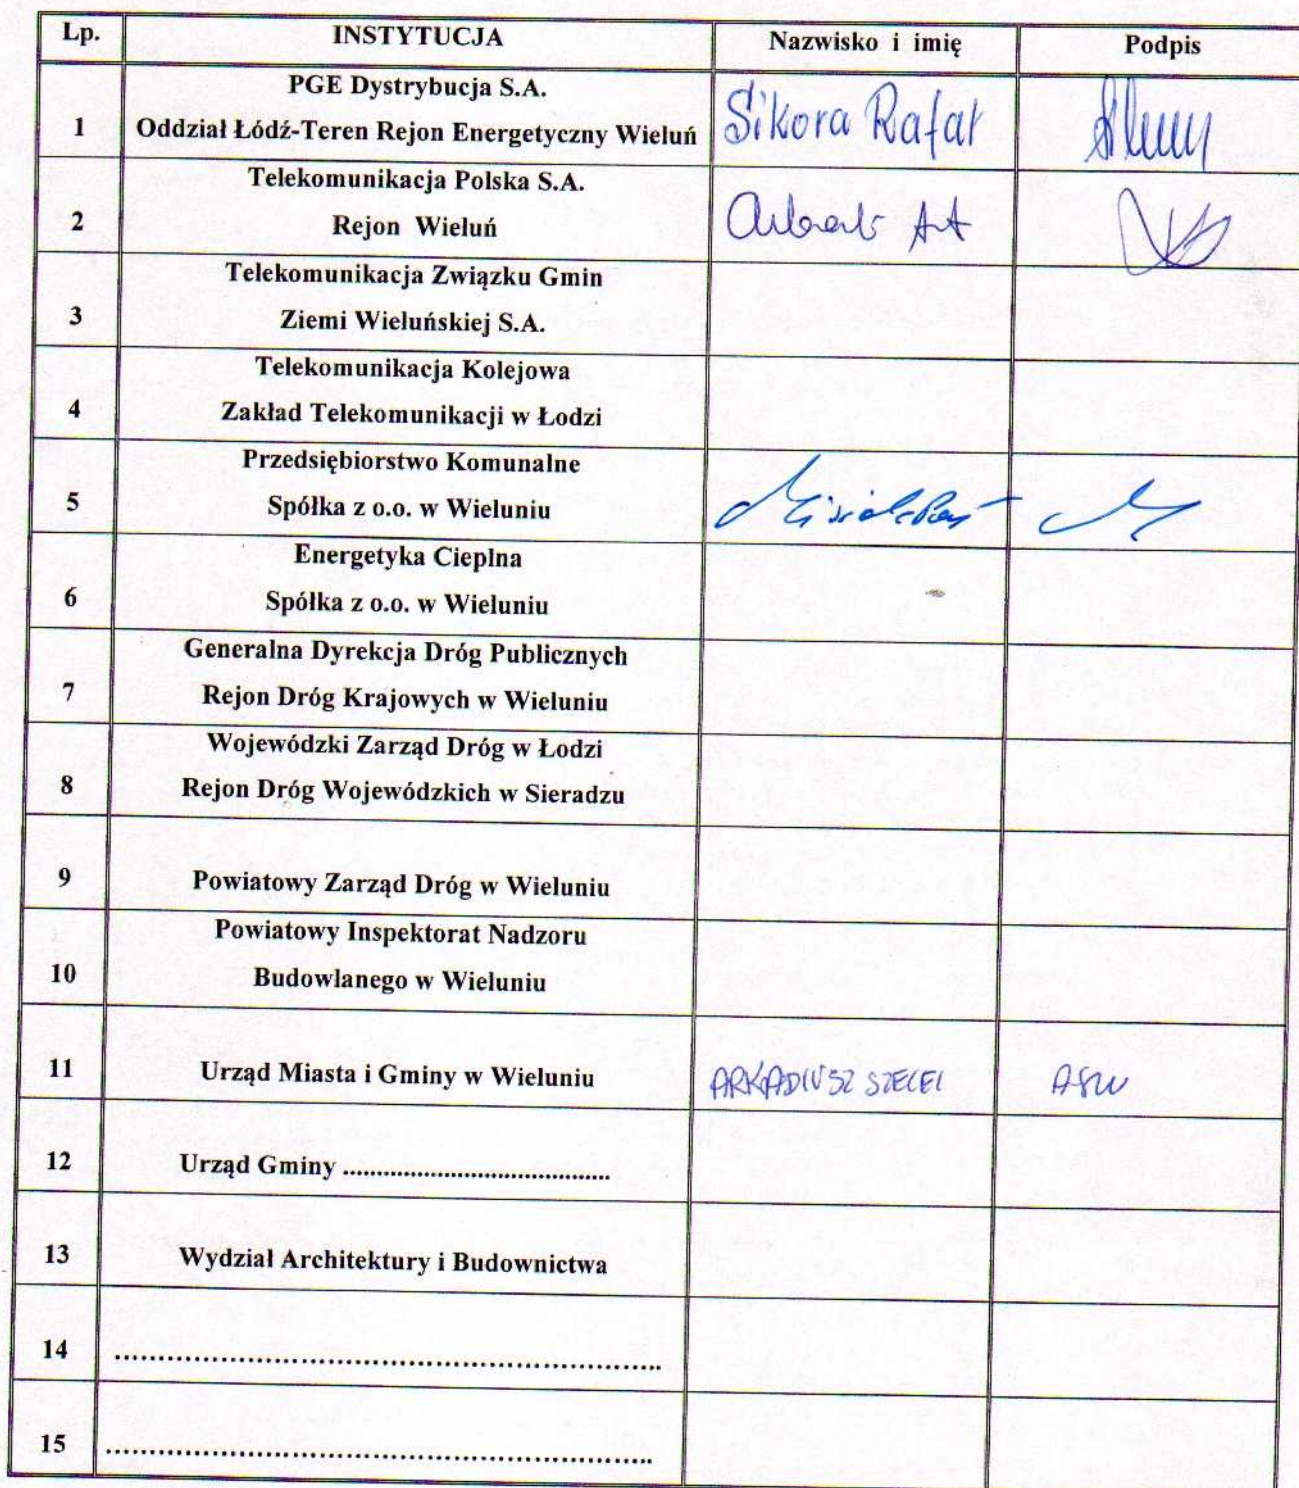 Lp. INSTYTUCJA Nazwisko i imię Podpis
PGE Dystrybucja S.A.
1 Oddział Łódź-Teren Rejon Energetyczny Wieluń Sikora Rafał
Telekomunikacja Polska S.A.
2 Rejon Wieluń
Telekomunikacja Związku Gmin
3 Ziemi Wieluńskiej S.A.
Telekomunikacja Kolejowa
4 Zakład Telekomunikacji w Łodzi
Przedsiębiorstwo Komunalne
5 Spółka z o.o. w Wieluniu
Energetyka Cieplna
6 Spółka z o.o. w Wieluniu
Generalna Dyrekcja Dróg Publicznych
7 Rejon Dróg Krajowych w Wieluniu
Wojewódzki Zarząd Dróg w Łodzi
8 Rejon Dróg Wojewódzkich w Sieradzu
9 Powiatowy Zarząd Dróg w Wieluniu
Powiatowy Inspektorat Nadzoru
10 Budowlanego w Wieluniu
11 Urząd Miasta i Gminy w Wieluniu ARKADIUSZ
12 Urząd Gminy ........................................
13 Wydział Architektury i Budownictwa
14 ...............................................................
15 ...............................................................